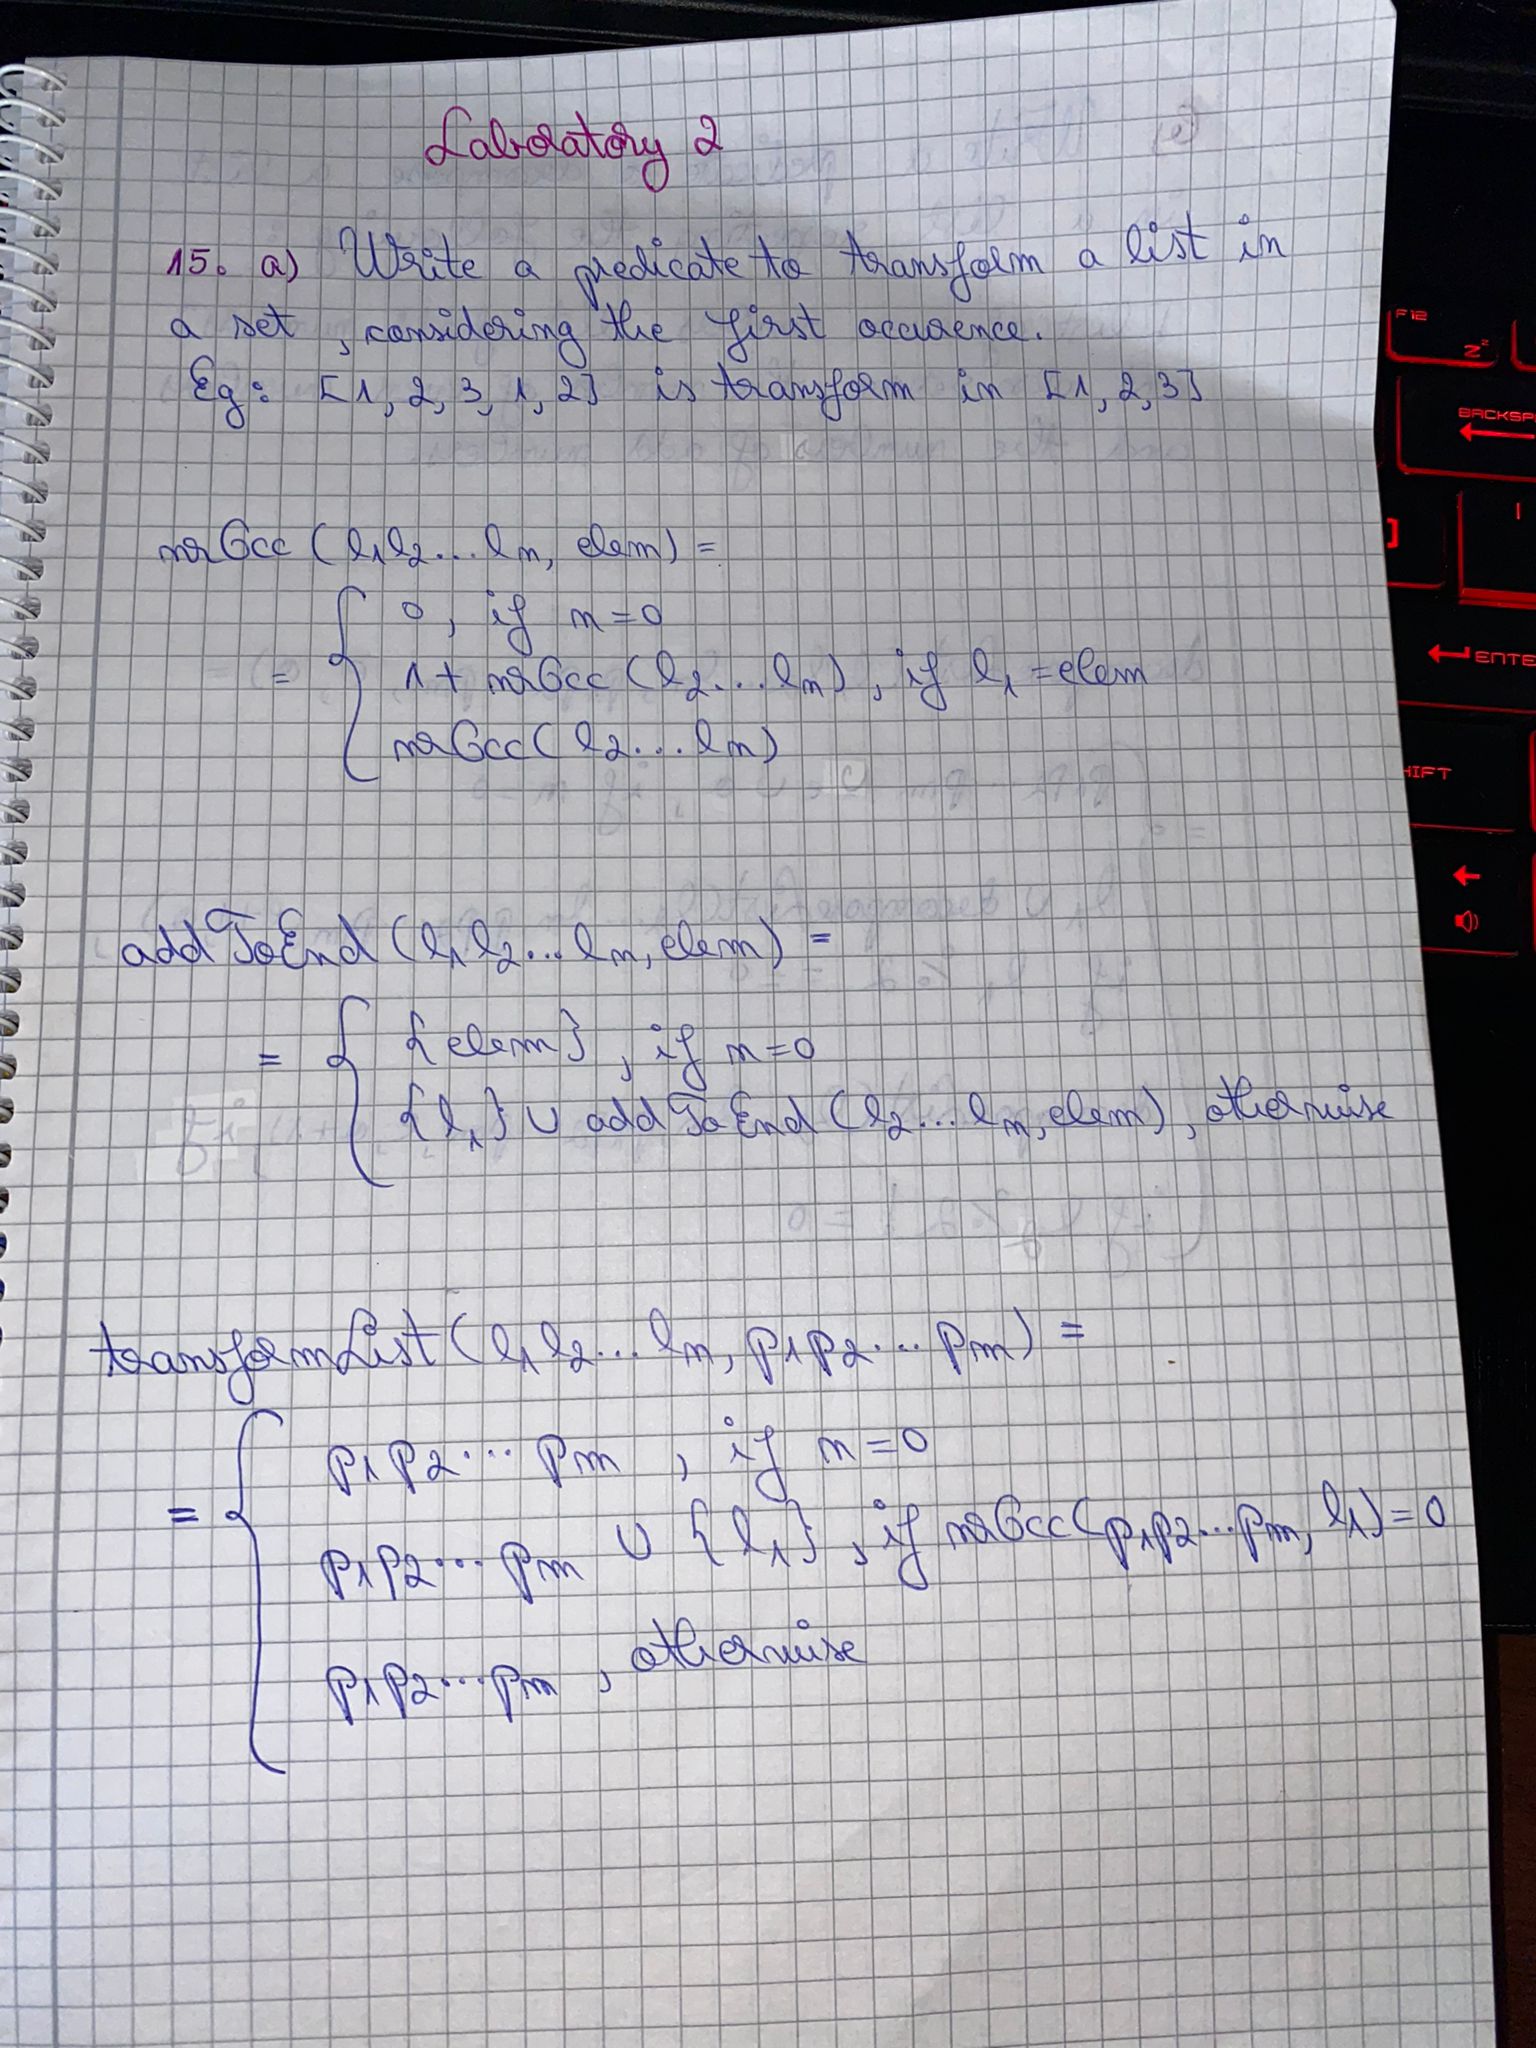 Laboratory 2
15. a) Write a predicate to transform a list in
a set, considering the first occurence.
Eg: [1, 2, 3, 1, 2] is transform in [1, 2, 3]
nrOcc (l₁l₂...lₙ, elem) =
= { 0, if n=0
1 + nrOcc (l₂...lₙ), if l₁ = elem
nrOcc (l₂...lₙ)
addToEnd (l₁l₂...lₙ, elem) =
= { {elem}, if n=0
{l₁} ∪ addToEnd (l₂...lₙ, elem), otherwise
transformList (l₁l₂...lₙ, p₁p₂...pₘ) =
= { p₁p₂...pₘ, if n=0
p₁p₂...pₘ ∪ {l₁}, if nrOcc(p₁p₂...pₘ, l₁)=0
p₁p₂...pₘ, otherwise
F12
Z
BACKSP
]
ENTE
HIFT